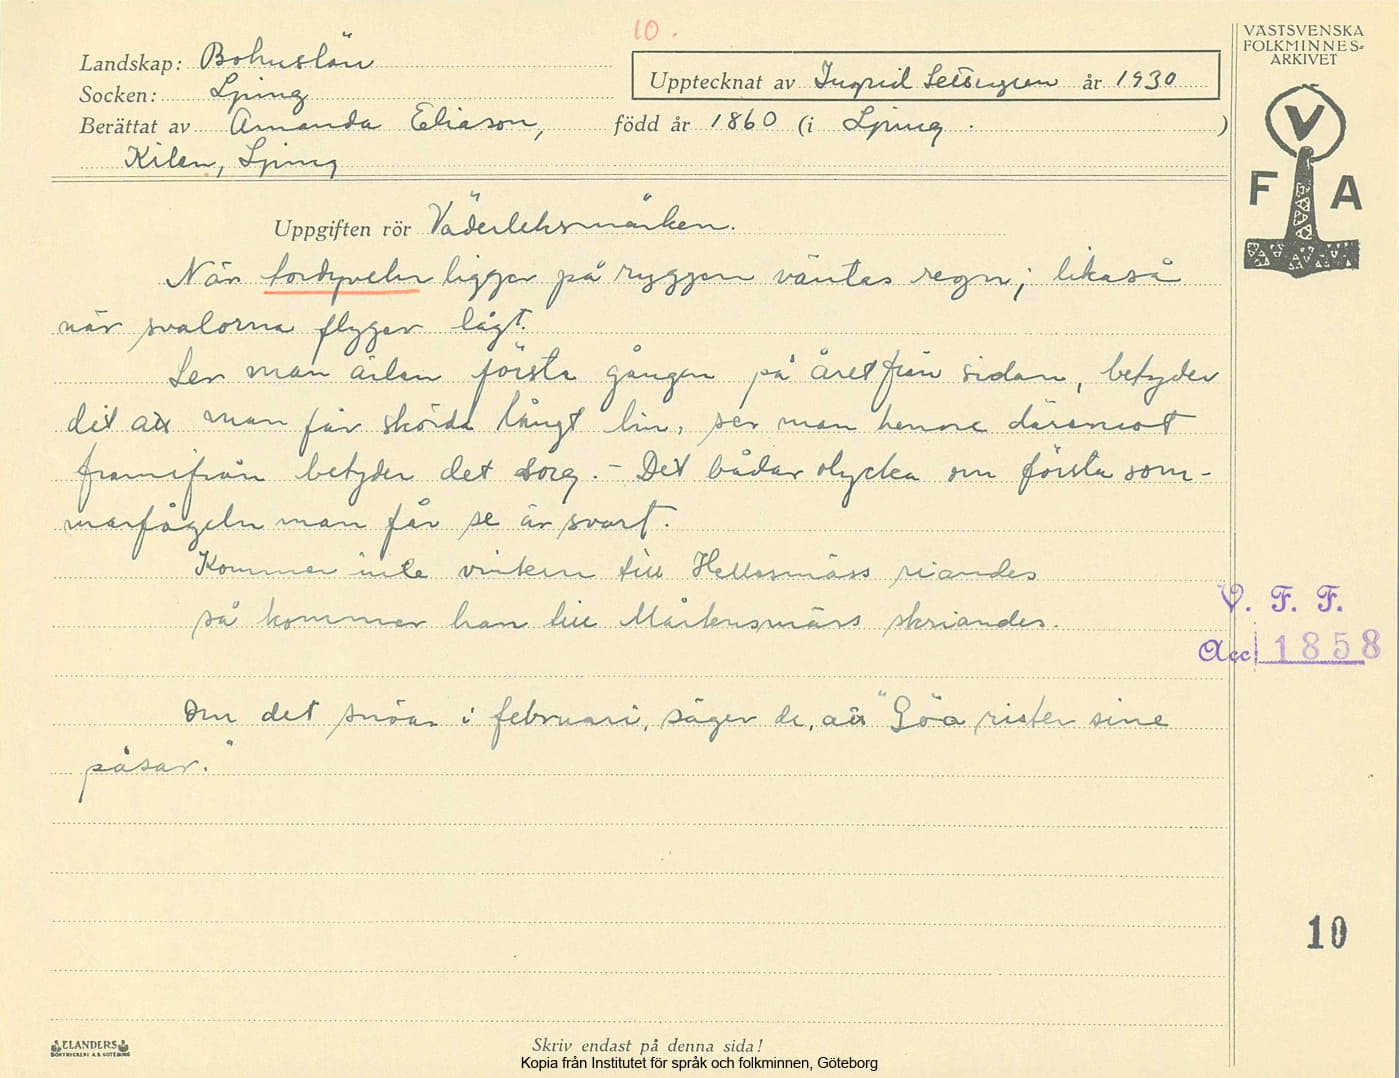 10.
VÄSTSVENSKA
FOLKMINNES-
ARKIVET
Landskap: Bohuslän
Upptecknat av Ingrid år 1930
Socken: Ljung
Berättat av Amanda Eliason, född år 1860 (i Ljung.)
Kilen, Ljung
V
F A
Uppgiften rör Väderleksmärken.
När tordyveln ligger på ryggen väntas regn; likaså
när svalorna flyger lågt.
Ser man ärlan första gången på året från sidan, betyder
det att man får skörda långt lin, ser man henne däremot
framifrån betyder det sorg. - Det bådar olycka om första som-
marfågeln man får se är svart.
Kommer inte vintern till Hellesmäss riandes
så kommer han till Mårtensmäss skriandes.
V. F. F.
Acc. 1858
Om det snöar i februari, säger de, att "Göa rister sine
påsar."
10
ELANDERS
BOKTRYCKERI A.B. GÖTEBORG
Skriv endast på denna sida!
Kopia från Institutet för språk och folkminnen, Göteborg